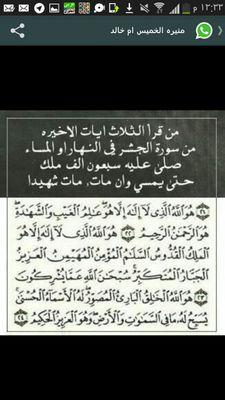 م ١٢:٣٣
منيره الخميس ام خالد
من قرأ الثلاث ايات الاخيره
من سورة الحشر في النهار او المساء
صلى عليه سبعون الف ملك
حتى يمسي وان مات، مات شهيدا
هُوَ ٱللَّهُ ٱلَّذِى لَآ إِلَٰهَ إِلَّا هُوَ عَٰلِمُ ٱلْغَيْبِ وَٱلشَّهَٰدَةِ
هُوَ ٱلرَّحْمَٰنُ ٱلرَّحِيمُ ٢٢ هُوَ ٱللَّهُ ٱلَّذِى لَآ إِلَٰهَ إِلَّا هُوَ
ٱلْمَلِكُ ٱلْقُدُّوسُ ٱلسَّلَٰمُ ٱلْمُؤْمِنُ ٱلْمُهَيْمِنُ ٱلْعَزِيزُ
ٱلْجَبَّارُ ٱلْمُتَكَبِّرُ سُبْحَٰنَ ٱللَّهِ عَمَّا يُشْرِكُونَ
٢٣ هُوَ ٱللَّهُ ٱلْخَٰلِقُ ٱلْبَارِئُ ٱلْمُصَوِّرُ لَهُ ٱلْأَسْمَآءُ ٱلْحُسْنَىٰ
يُسَبِّحُ لَهُۥ مَا فِى ٱلسَّمَٰوَٰتِ وَٱلْأَرْضِ وَهُوَ ٱلْعَزِيزُ ٱلْحَكِيمُ ٢٤